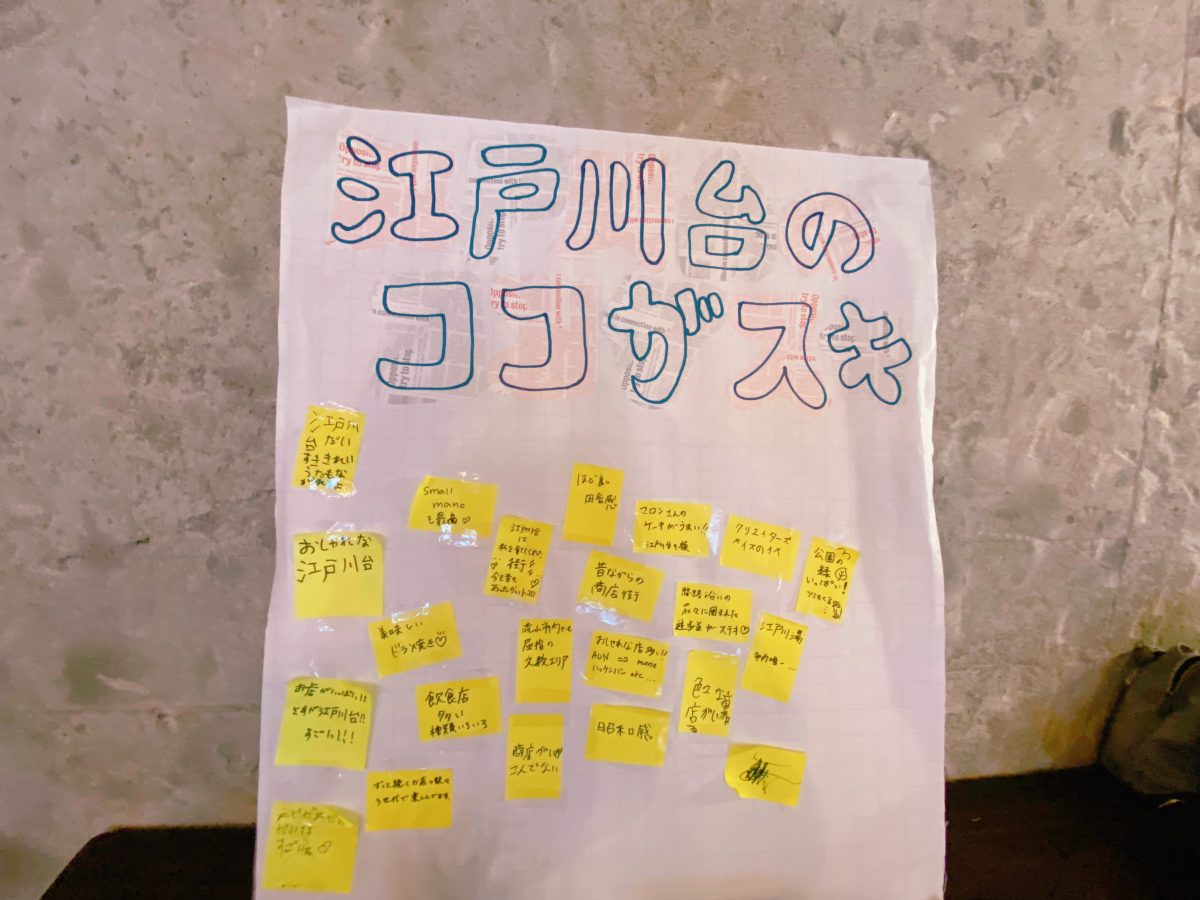 江戸川台の
ココガスキ
江戸川
台だい
すききれい
small
mano
も最高♡
ほど良い
田舎感
江戸川台
は
私を育ててくれた
街！
今も昔も
あったかい
マロンさんの
ケーキがうまい!!
江戸川台の顔
クリエイターズ
公園の
緑
いっぱい！
おしゃれな
江戸川台
昔ながらの
商店街
線路沿いの
遊歩道がステキ♡
江戸川湯
市内唯一
美味しい
ピラメ焼き♡
流山市内でも
屈指の
文教エリア
おしゃれな店多い!!
AUN ココ mano
ハックンバー etc...
色々な
店がい
お店がいっぱい!!
さすが江戸川台!!
すごいし!!
飲食店
多い
種類いろいろ
昭和感
商店が
こんでない
ずっと続くお店が
3世代で楽しんでます